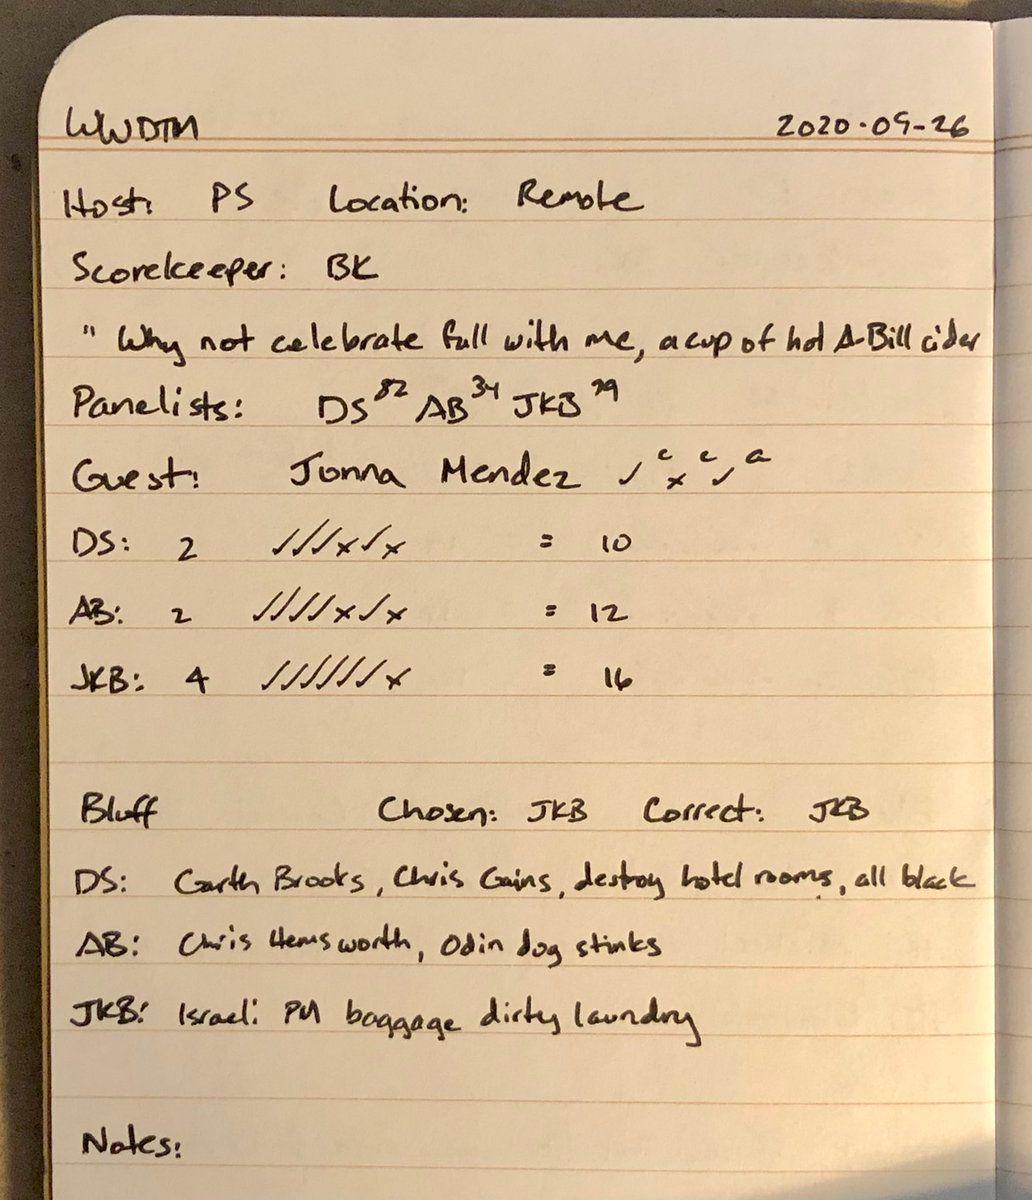 WWDTM 2020-09-26
Host: PS Location: Remote
Scorekeeper: BK
" Why not celebrate fall with me, a cup of hot A-Bill cider
Panelists: DS 82 AB 34 JKB 29
Guest: Jonna Mendez ✓ c x c ✓ a
DS: 2 ✓✓✓x✓x = 10
AB: 2 ✓✓✓✓x✓x = 12
JKB: 4 ✓✓✓✓✓✓x = 16
Bluff Chosen: JKB Correct: JKB
DS: Garth Brooks, Chris Gains, destroy hotel rooms, all black
AB: Chris Hemsworth, Odin dog stinks
JKB: Israeli PM baggage dirty laundry
Notes: